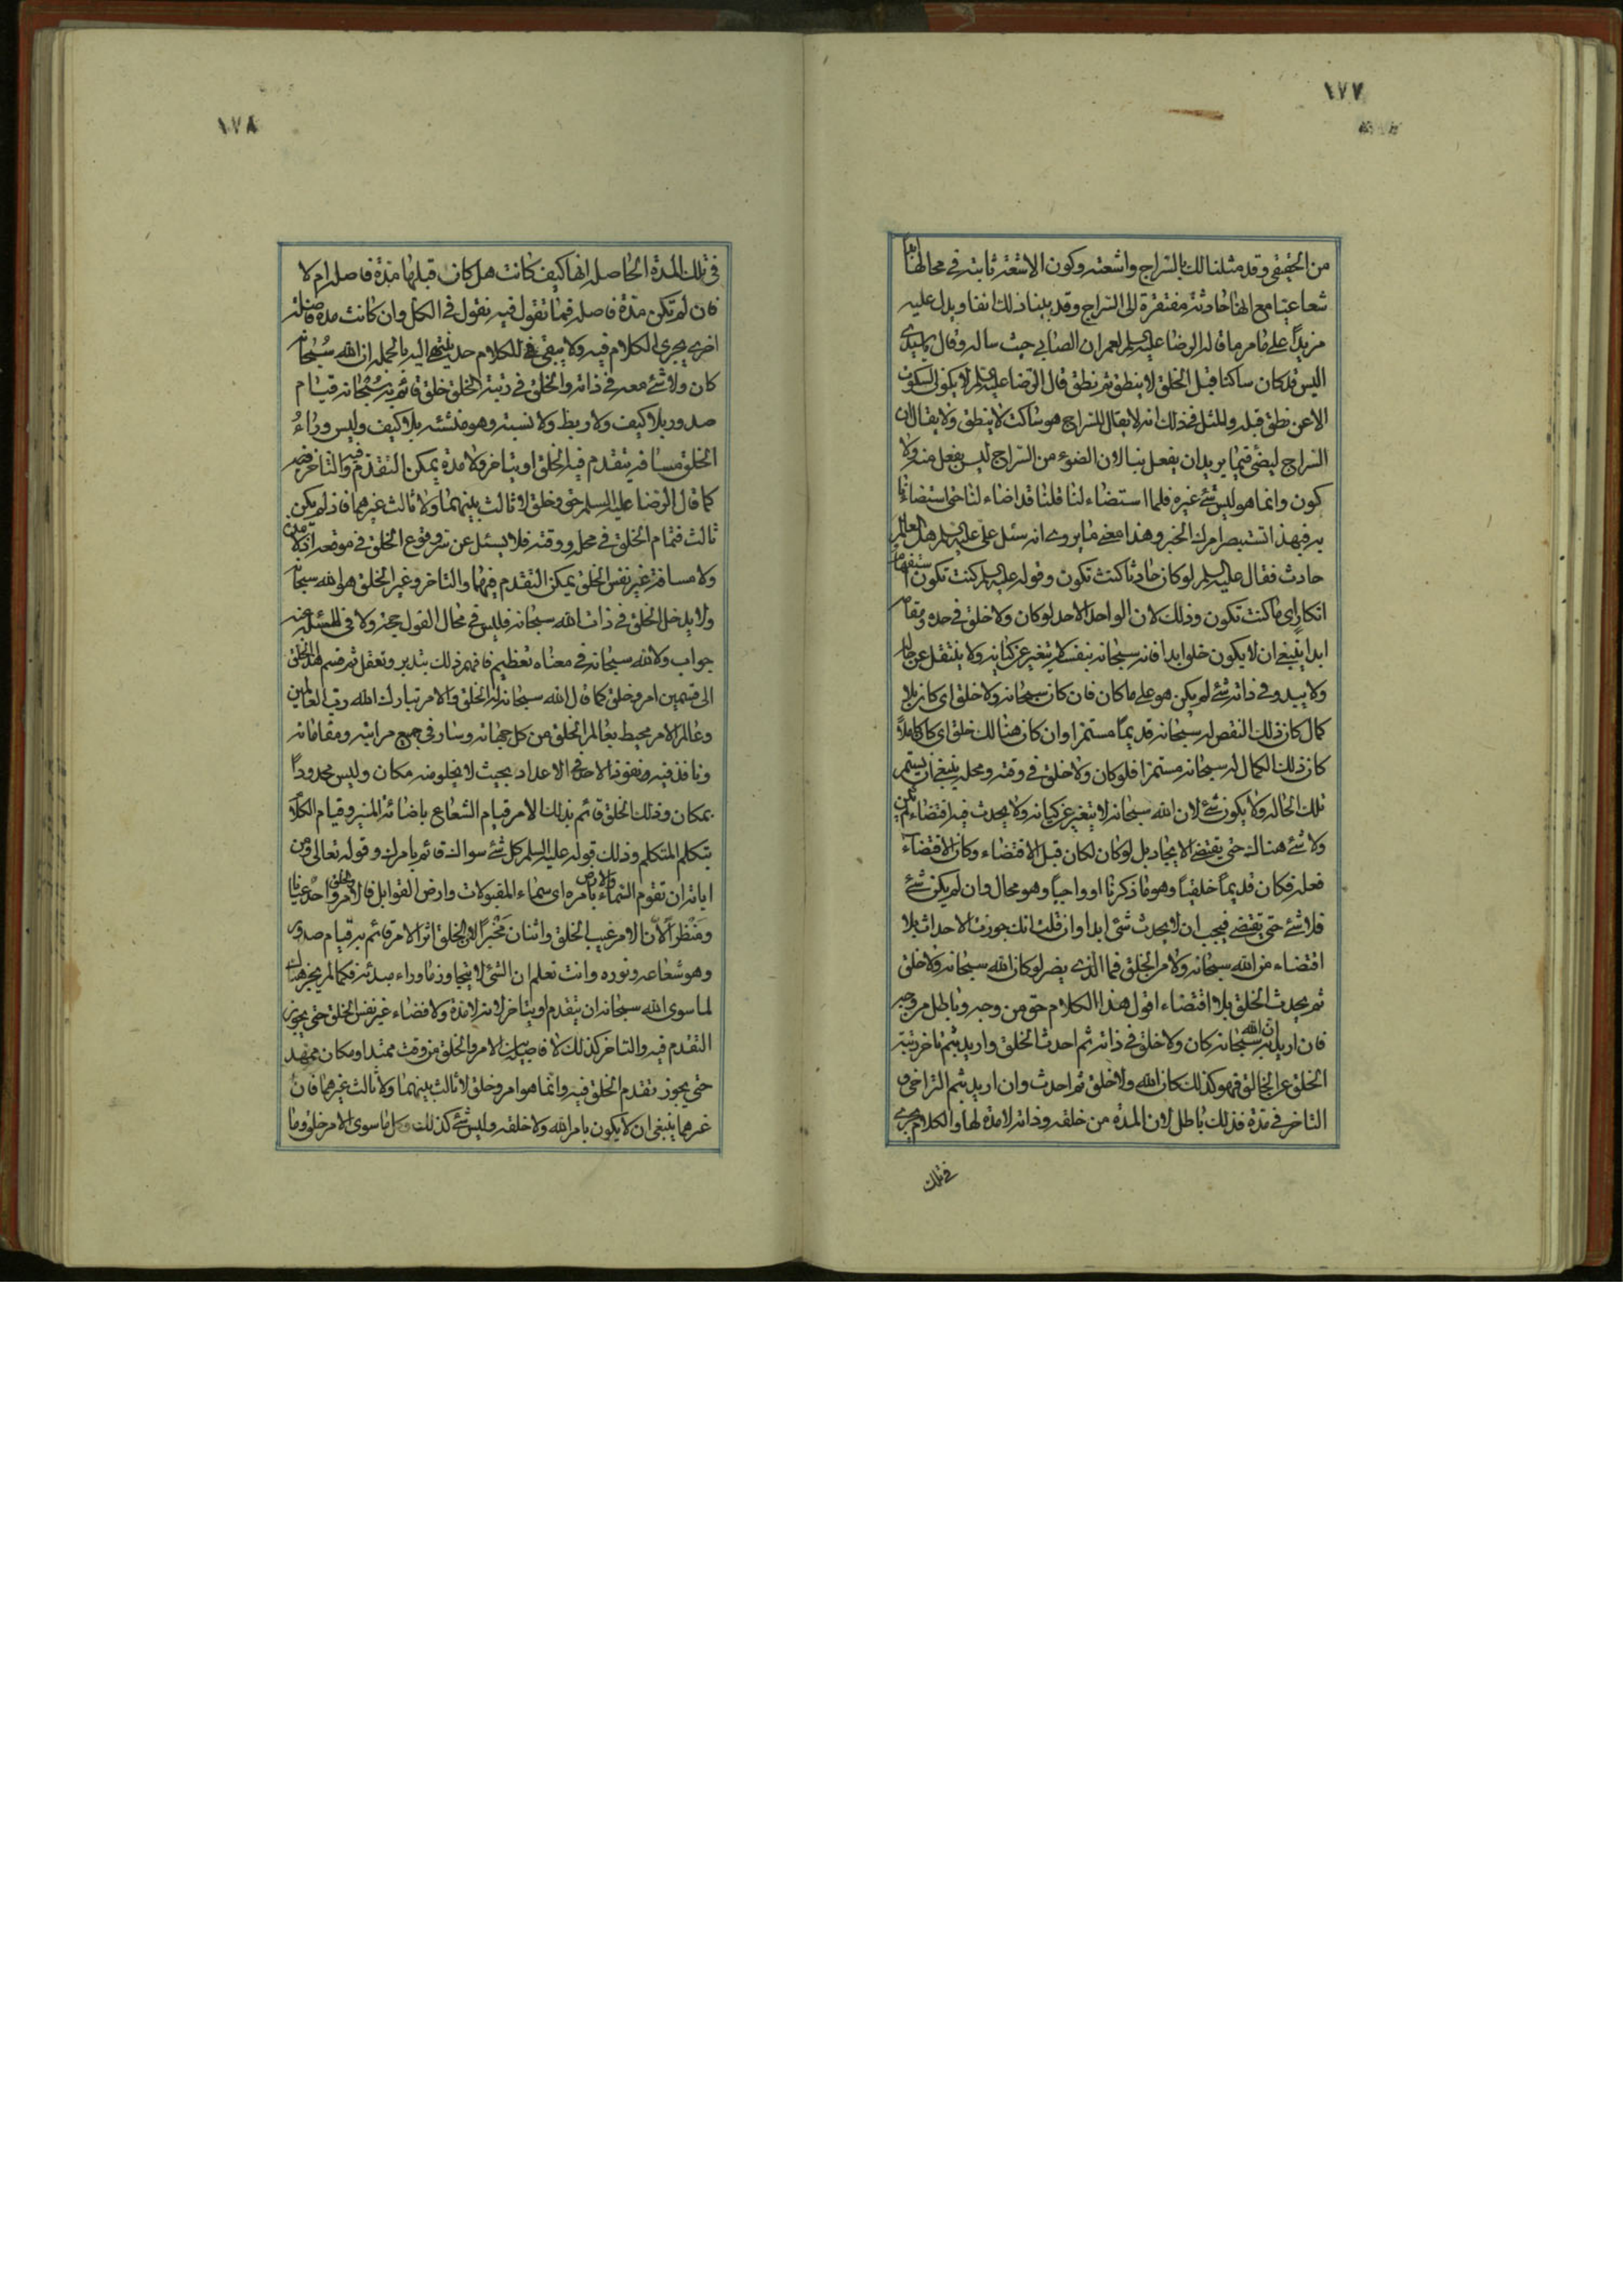 ١٧٧
من الحقيقي وقد مثلنا لك بالسراج واشعته وكون الاشعة ثابتة في محالها
شعاعيتها مع انها حادثة مفتقرة الى السراج وقد بينا ذلك انفا ويدل عليه
مزيدا على ما مر ما قاله الرضا عليه السلم لعمران الصابي حيث ساله وقال يا سيدي
اليس قد كان ساكتا قبل الخلق لا ينطق ثم نطق قال الرضا عليه السلم لا يكون السكوت
الا عن نطق قبله والمثل في ذلك انه لا يقال للسراج هو ساكت لا ينطق ولا يقال ان
السراج ليضئ فيما يريد ان يفعل بنا لان الضوء من السراج ليس بفعل منه ولا
كون وانما هو ليس شئ غيره فلما استضاء لنا قلنا قد اضاء لنا حتى استضاءنا
به فبهذا تستبصر امرك الخبر وهذا معنى ما يروى انه سئل علي عليه السلم هل العالم
حادث فقال عليه السلم لو كان حادثا كنت تكون وقوله عليه السلم كنت تكون استفهام
انكار اي ما كنت تكون وذلك لان الواحد الاحد لو كان ولا خلق في حده ومقامه
ابدا ينبغي ان لا يكون خلق ابدا فانه سبحانه بنفسه لم يتغير عن كيانه ولا ينتقل عن حاله
ولا يبدو في ذاته شئ لم يكن هو على ما كان فان كان سبحانه ولا خلق اي كان بلا
كمال كان ذلك النقص له سبحانه قديما مستمرا وان كان هنالك خلق اي كان كاملا
كان ذلك الكمال له سبحانه مستمرا فلو كان ولا خلق في وقته ومحله ينبغي ان يستمر
تلك الحاله ولا يكون شئ لان الله سبحانه لا يتغير عن كيانه ولا يحدث فيه اقتضاء لم يكن
ولا شئ هنالك حتى يقتضي الايجاد بل لو كان لكان قبل الاقتضاء وكان الاقتضاء
فعله فكان قديما خلقيا وهو ما ذكرنا او واجبا وهو محال وان لم يكن شئ
فلا شئ حتى يقتضي فيجب ان لا يحدث شئ ابدا وان قلت انك جوزت الاحداث بلا
اقتضاء من الله سبحانه ولا من الخلق فما الذي يضر لو كان الله سبحانه ولا خلق
ثم يحدث الخلق بلا اقتضاء اقول هذا الكلام حق من وجه وباطل من وجه
فان اريد به ان الله سبحانه كان ولا خلق في ذاته ثم احدث الخلق واريد بثم تاخر رتبة
الخلق عن الخالق فهو كذلك كان الله ولا خلق ثم احدث وان اريد بثم التراخي و
التاخر في مدة فذلك باطل لان المدة من خلقه وذاته لا مدة لها والكلام يجري
في تلك
١٧٨
في تلك المدة الحاصله انها كيف كانت هل كان قبلها مدة فاصله ام لا
فان لم تكن مدة فاصله فما تقول فيه نقول في الكل وان كانت مدة فاصلة
اخرى يجري الكلام فيه ولا يبقى للكلام حد ينتهي اليه بالجمله ان الله سبحانه
كان ولا شئ معه في ذاته والخلق في رتبة الخلق خلق قائم به سبحانه قيام
صدور بلا كيف ولا ربط ولا نسبته وهو منشئه بلا كيف وليس وراء
الخلق مسافة يتقدم فيه الخلق او يتاخر ولا مدة يمكن التقدم فيه والتاخر فيه
كما قال الرضا عليه السلم حق وخلق لا ثالث بينهما ولا ثالث غيرهما فاذ لم يكن
ثالث فتمام الخلق في محله ووقته فلا يسئل عن سر وقوع الخلق في موقعه اذ لا مدة
ولا مسافة غير نفس الخلق يمكن التقدم فيهما والتاخر وغير الخلق هو الله سبحانه
ولا يدخل الخلق في ذات الله سبحانه فليس في محال القول حجة ولا في المسئلة عنه
جواب ولا لله سبحانه في معناه تعظيم فافهم ذلك بتدبر وتعقل ثم قسم هذا الخلق
الى قسمين امر وخلق كما قال الله سبحانه له الخلق والامر تبارك الله رب العالمين
وعالم الامر محيط بعالم الخلق من كل جهاته وسار في جميع مراتبه ومقاماته
ونافذ فيه ونفوذ الاحد في الاعداد بحيث لا يخلو منه مكان وليس محدودا
بمكان وذلك الخلق قائم بذلك الامر قيام الشعاع باضائة المنير وقيام الكلام
بتكلم المتكلم وذلك قوله عليه السلم كل شئ سواك قائم بامرك وقوله تعالى ومن
اياته ان تقوم السماء والارض بامره اي سماء المقبولات وارض القوابل فالامر والخلق واحد عيانا
ومنظرا لان الامر غيب الخلق واثنان مخبرا لان الخلق اثر الامر قائم به قيام صدور
وهو شعاعه ونوره وانت تعلم ان الشئ لا يتجاوز ما وراء مبدئه فكما لم يجز هناك
لما سوى الله سبحانه ان يتقدم او يتاخر لانه لا مدة ولا فضاء غير نفس الخلق حتى يجوز
التقدم فيه والتاخر كذلك لا فاصل بين الامر والخلق من وقت ممتد او مكان ممهد
حتى يجوز تقدم الخلق فيه وانما هو امر وخلق لا ثالث بينهما ولا ثالث غيرهما فان
غيرهما ينبغي ان لا يكون بامر الله ولا خلقه وليس شئ كذلك وكل ما سوى الامر خلق وما